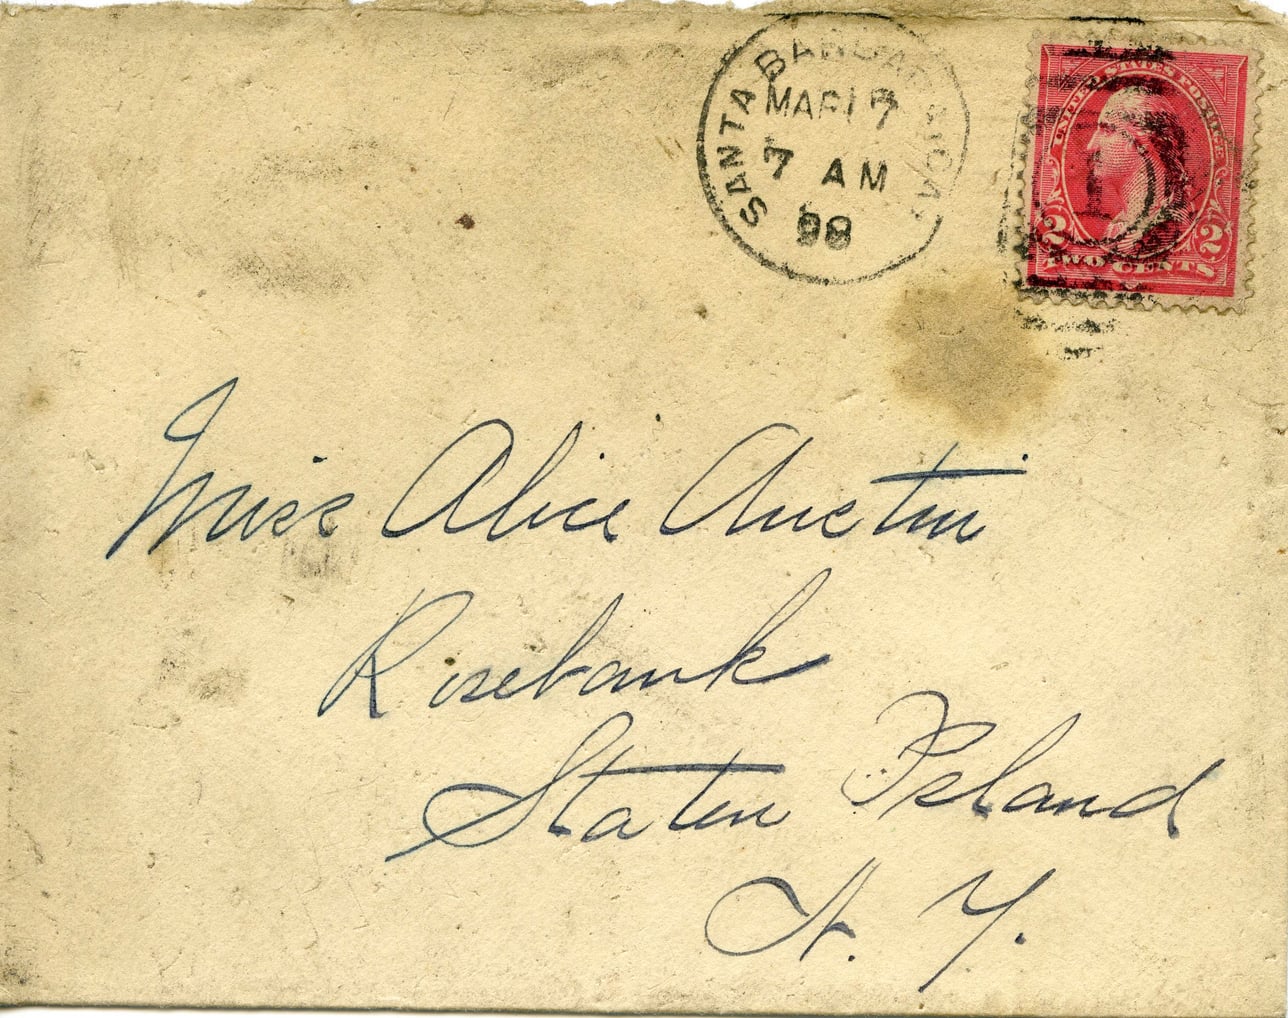 SANTA BARBARA, CAL.
MAR 17
7 AM
98
UNITED STATES POSTAGE
2 2
TWO CENTS
1
Miss Alice Austin
Rosebank
Staten Island
N. Y.